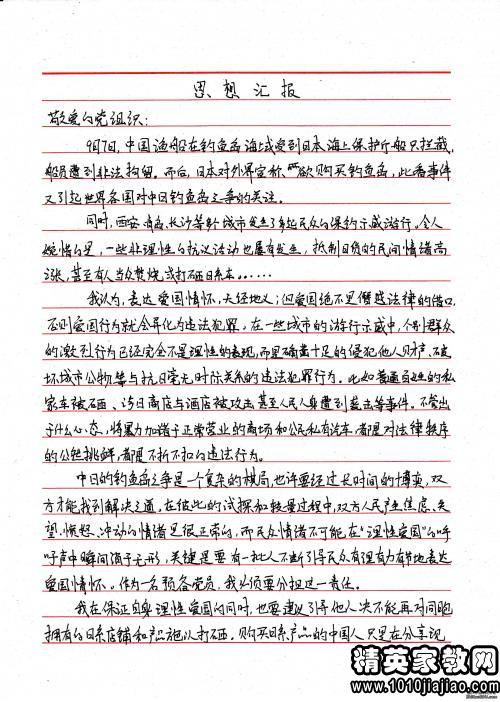 思想汇报
敬爱的党组织:
9月7日,中国渔船在钓鱼岛海域受到日本海上保护厅船只拦截,
船员遭到非法拘留。而后,日本对外界宣称欲购买钓鱼岛,此番事件
又引起世界各国对中日钓鱼岛之争的关注。
同时,西安、青岛、长沙等城市发生了多起民众的保钓示威游行。令人
惋惜的是,一些非理性的抗议活动也屡有发生,抵制日货的民间情绪高
涨,甚至有人当众焚烧或打砸日系车……
我认为,表达爱国情怀,天经地义;但爱国绝不是僭越法律的借口,
否则爱国行为就会异化为违法犯罪,在一些城市的游行示威中,个别群众
的激烈行为已经完全不是理性的表现,而是确凿十足的侵犯他人财产、破
坏城市公物等与抗日毫无实际关系的违法犯罪行为。比如普通百姓的私
家车被砸、涉日商店与酒店被攻击甚至人民人身遭到袭击等事件。不管出
于什么心态,将暴力加诸于正常营业的商场和公民私有汽车,都是对法律秩序
的公然挑衅,都是不折不扣的违法行为。
中日的钓鱼岛之争是一个复杂的棋局,也许要经过长时间的博弈,双
方才能找到解决之道,在彼此的试探和较量过程中,双方人民产生焦虑、失
望、愤怒、冲动的情绪是很正常的,而民众情绪不可能在"理性爱国"的呼
吁声中瞬间消于无形,关键是要有一批人不断引导民众有理有力有节地表达
爱国情怀。作为一名预备党员,我必须要分担这一责任。
我在保证自身理性爱国的同时,也要建议引导他人决不能再对同胞
拥有的日系店铺和产品施以打砸。购买日系产品的中国人只是在分享现
精英家教网
www.1010jiajiao.com